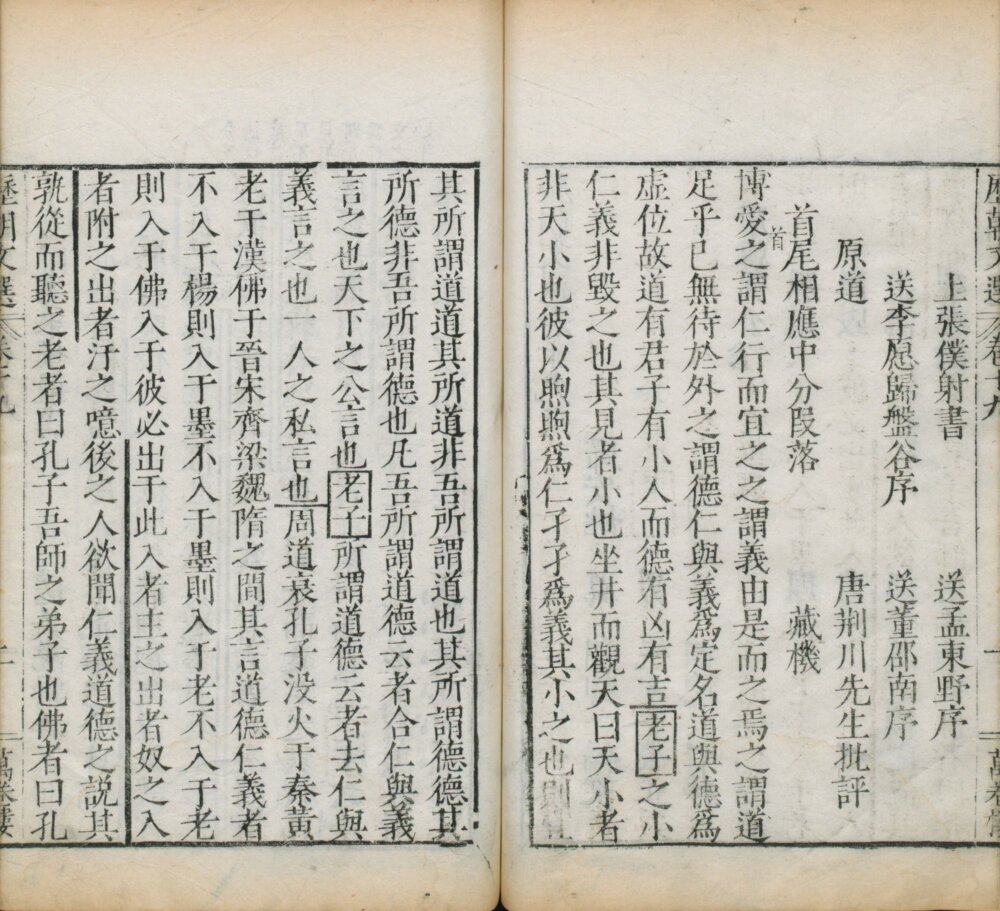 歷朝文選 卷十九 一
上張僕射書 送孟東野序
送李愿歸盤谷序 送董邵南序
原道 唐荆川先生批評
首尾相應中分叚落 藏機
首
博愛之謂仁行而宜之之謂義由是而之焉之謂道
足乎已無待於外之謂德仁與義爲定名道與德爲
虛位故道有君子有小人而德有凶有吉老子之小
仁義非毀之也其見者小也坐井而觀天曰天小者
非天小也彼以煦煦爲仁孑孑爲義其小之也則宜
其所謂道道其所道非吾所謂道也其所謂德德其
所德非吾所謂德也凡吾所謂道德云者合仁與義
言之也天下之公言也老子所謂道德云者去仁與
義言之也一人之私言也周道衰孔子没火于秦黃
老于漢佛于晉宋齊梁魏隋之間其言道德仁義者
不入于楊則入于墨不入于墨則入于老不入于老
則入于佛入于彼必出于此入者主之出者奴之入
者附之出者汙之噫後之人欲聞仁義道德之説其
孰從而聽之老者曰孔子吾師之弟子也佛者曰孔
歷朝文選 卷十九 二 萬卷樓